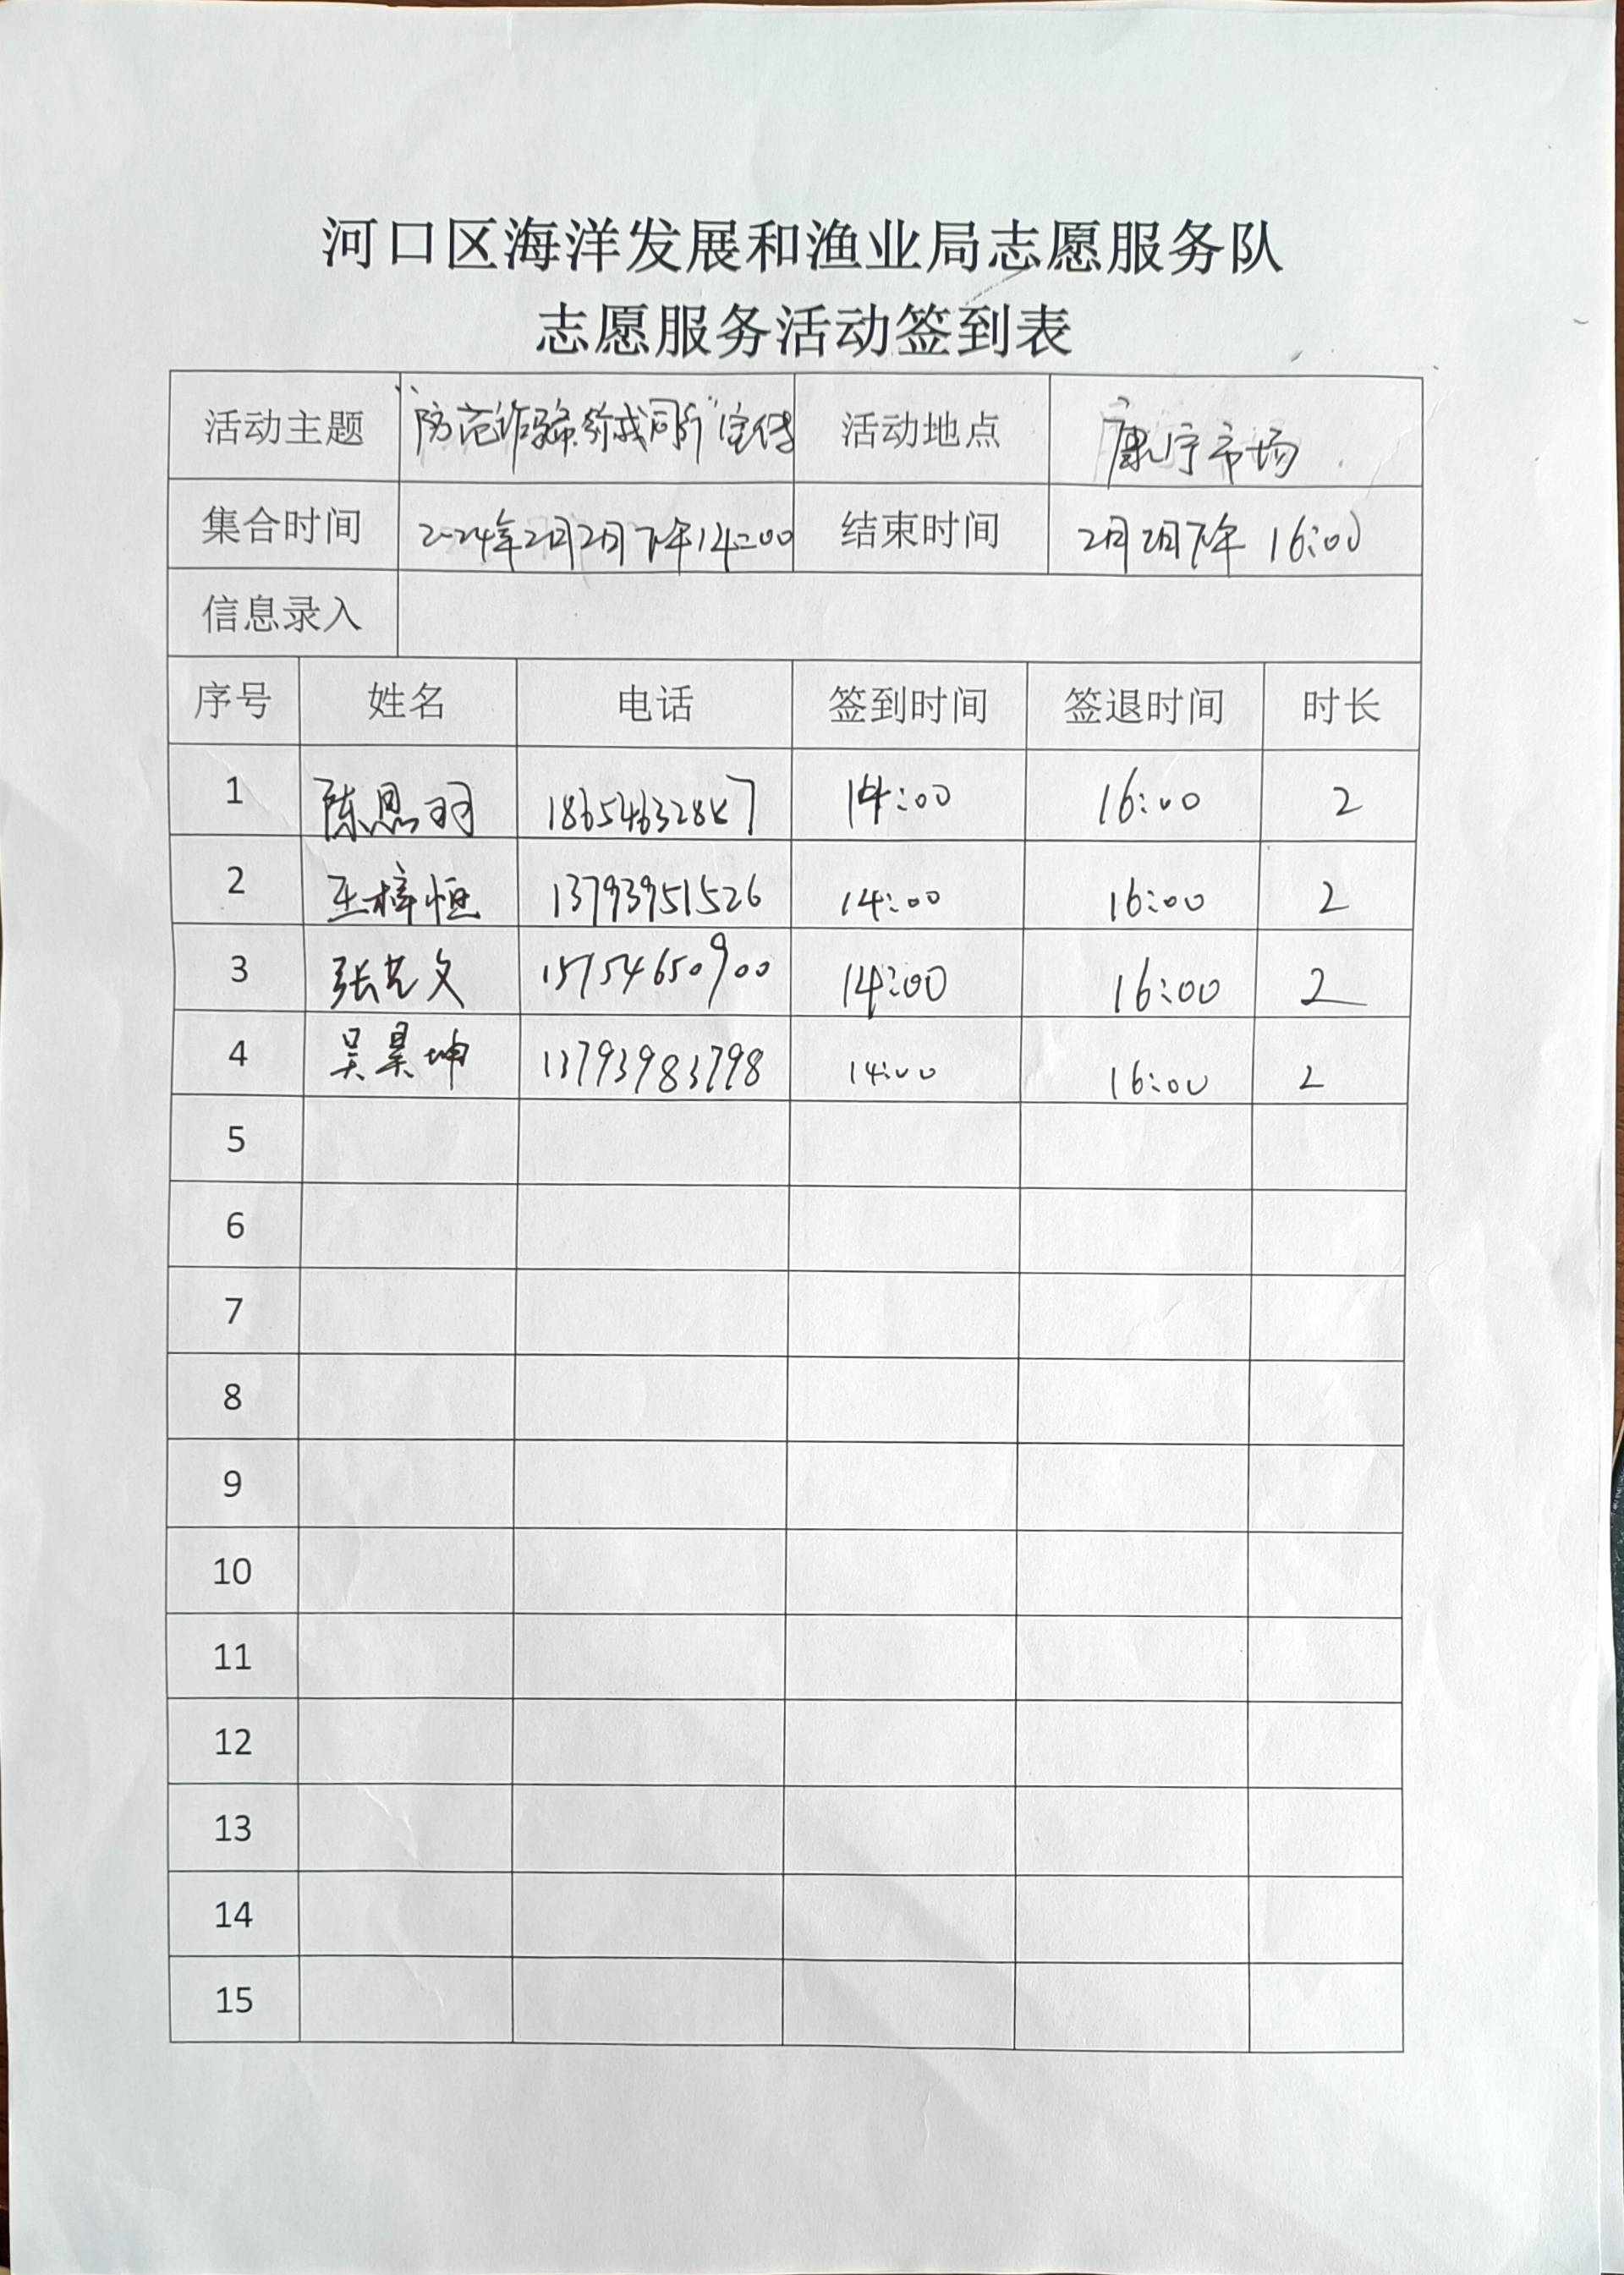 河口区海洋发展和渔业局志愿服务队
志愿服务活动签到表
活动主题 "防范诈骗 你我同行"宣传 活动地点 康宁市场
集合时间 2024年2月2日下午14:00 结束时间 2月2日下午 16:00
信息录入
序号 姓名 电话 签到时间 签退时间 时长
1 陈思羽 14:00 16:00 2
2 王梓恒 13793951526 14:00 16:00 2
3 张艺文 15754650900 14:00 16:00 2
4 吴昊坤 13793983798 14:00 16:00 2
5
6
7
8
9
10
11
12
13
14
15